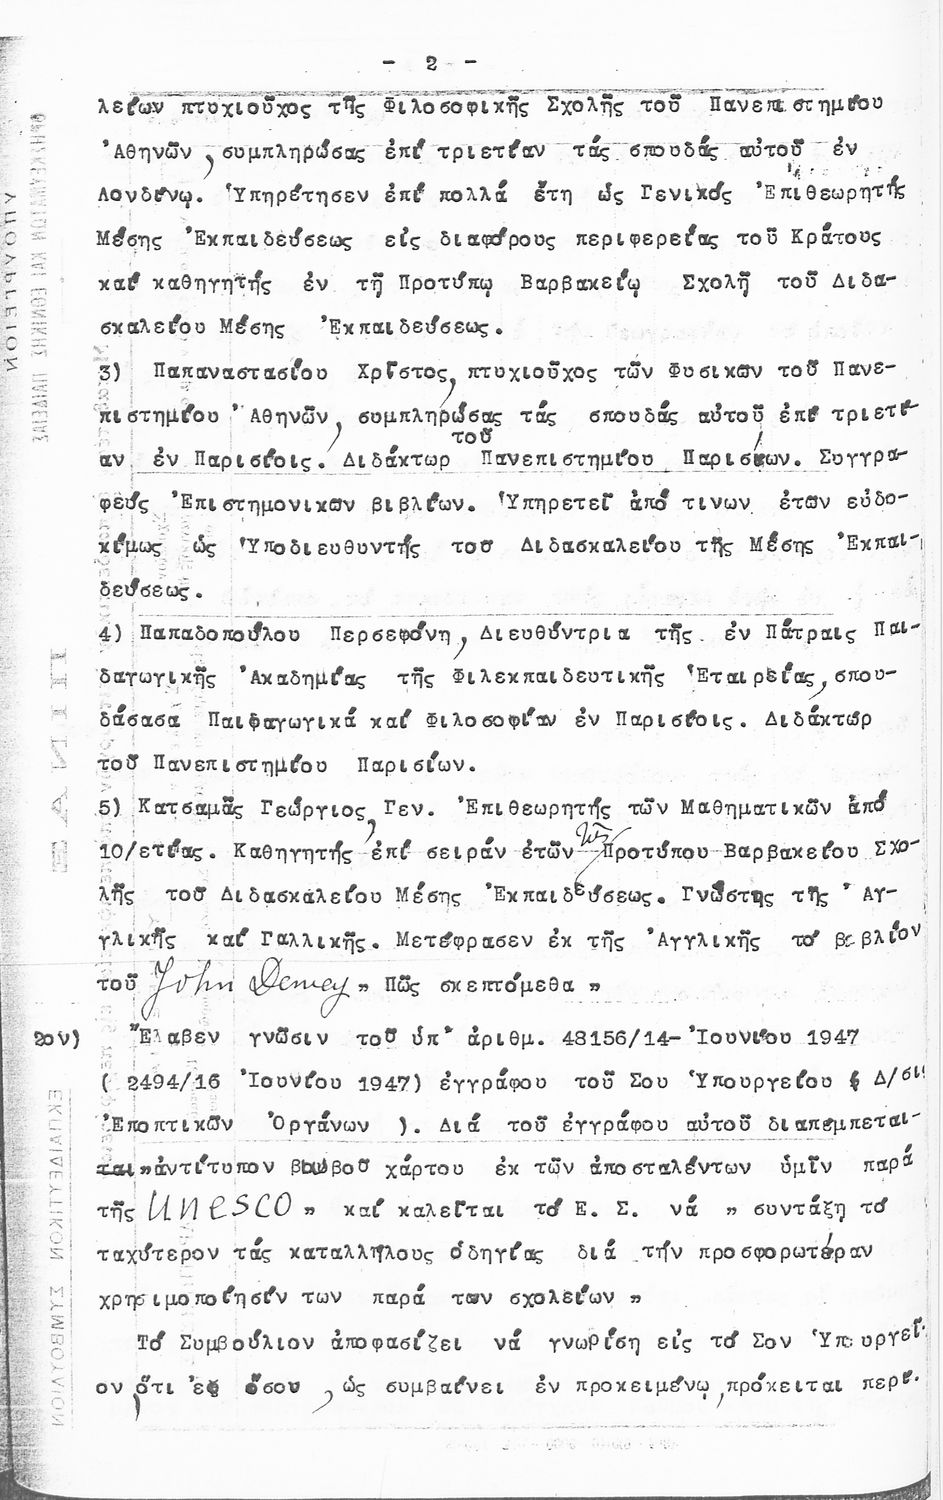 - 2 -
λείων πτυχιοῦχος τῆς Φιλοσοφικῆς Σχολῆς τοῦ Πανεπιστημίου
Ἀθηνῶν, συμπληρώσας ἐπί τριετίαν τάς σπουδάς αὐτοῦ ἐν
Λονδίνῳ. Ὑπηρέτησεν ἐπί πολλά ἔτη ὡς Γενικός Ἐπιθεωρητής
Μέσης Ἐκπαιδεύσεως εἰς διαφόρους περιφερείας τοῦ Κράτους
καί καθηγητής ἐν τῇ Προτύπῳ Βαρβακείῳ Σχολῇ τοῦ Διδα-
σκαλείου Μέσης Ἐκπαιδεύσεως.
3) Παπαναστασίου Χρῖστος, πτυχιοῦχος τῶν Φυσικῶν τοῦ Πανε-
πιστημίου Ἀθηνῶν, συμπληρώσας τάς σπουδάς αὐτοῦ ἐπί τριετί-
αν ἐν Παρισίοις. Διδάκτωρ τοῦ Πανεπιστημίου Παρισίων. Συγγρα-
φεύς Ἐπιστημονικῶν βιβλίων. Ὑπηρετεῖ ἀπό τινων ἐτῶν εὐδο-
κίμως ὡς Ὑποδιευθυντής τοῦ Διδασκαλείου τῆς Μέσης Ἐκπαι-
δεύσεως.
4) Παπαδοπούλου Περσεφόνη, Διευθύντρια τῆς ἐν Πάτραις Παι-
δαγωγικῆς Ἀκαδημίας τῆς Φιλεκπαιδευτικῆς Ἑταιρείας, σπου-
δάσασα Παιδαγωγικά καί Φιλοσοφίαν ἐν Παρισίοις. Διδάκτωρ
τοῦ Πανεπιστημίου Παρισίων.
5) Κατσαμᾶς Γεώργιος, Γεν. Ἐπιθεωρητής τῶν Μαθηματικῶν ἀπό
10/ετίας. Καθηγητής ἐπί σειράν ἐτῶν τῆς Προτύπου Βαρβακείου Σχο-
λῆς τοῦ Διδασκαλείου Μέσης Ἐκπαιδεύσεως. Γνώστης τῆς Ἀγ-
γλικῆς καί Γαλλικῆς. Μετέφρασεν ἐκ τῆς Ἀγγλικῆς τό βιβλίον
τοῦ John Dewey „ Πῶς σκεπτόμεθα „
2ον) Ἔλαβεν γνῶσιν τοῦ ὑπ' ἀριθμ. 48156/14- Ἰουνίου 1947
( 2494/16 Ἰουνίου 1947) ἐγγράφου τοῦ Σου Ὑπουργείου ( Δ/σις
Ἐποπτικῶν Ὀργάνων ). Διά τοῦ ἐγγράφου αὐτοῦ διαπέμπεται-
ται „ἀντίτυπον βωβοῦ χάρτου ἐκ τῶν ἀποσταλέντων ὑμῖν παρά
τῆς Unesco „ καί καλεῖται τό Ε. Σ. νά „ συντάξῃ τό
ταχύτερον τάς καταλλήλους ὁδηγίας διά τήν προσφορωτέραν
χρησιμοποίησίν των παρά τῶν σχολείων „
Τό Συμβούλιον ἀποφασίζει νά γνωρίσῃ εἰς τό Σον Ὑπουργεῖ-
ον, ὅτι ἐφ ὅσον, ὡς συμβαίνει ἐν προκειμένῳ, πρόκειται περί